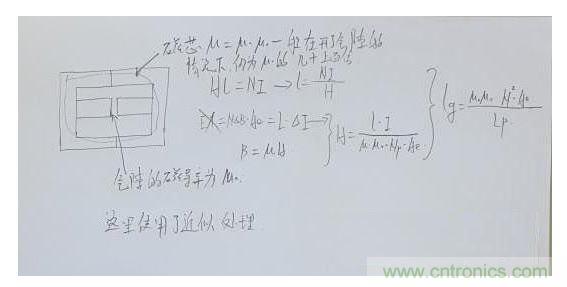 磁芯 μ = μ₀μᵣ 一般在开了气隙的
情况下, 仍为 μ₀ 的几十上百倍
Hl = NI → l = NI/H
= NΔB·Ae = L·ΔI →
B = μH
H = L·I/(μᵣ·μ₀·Np·Ae)
lg = μᵣμ₀ N²·Ae/Lp
气隙的磁导率为 μ₀
这里使用了近似处理
www.cntronics.com